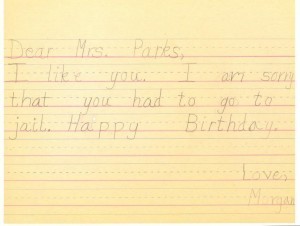 Dear Mrs. Parks,
I like you. I am sorry
that you had to go to
jail. Happy Birthday.
Love,
Morgan